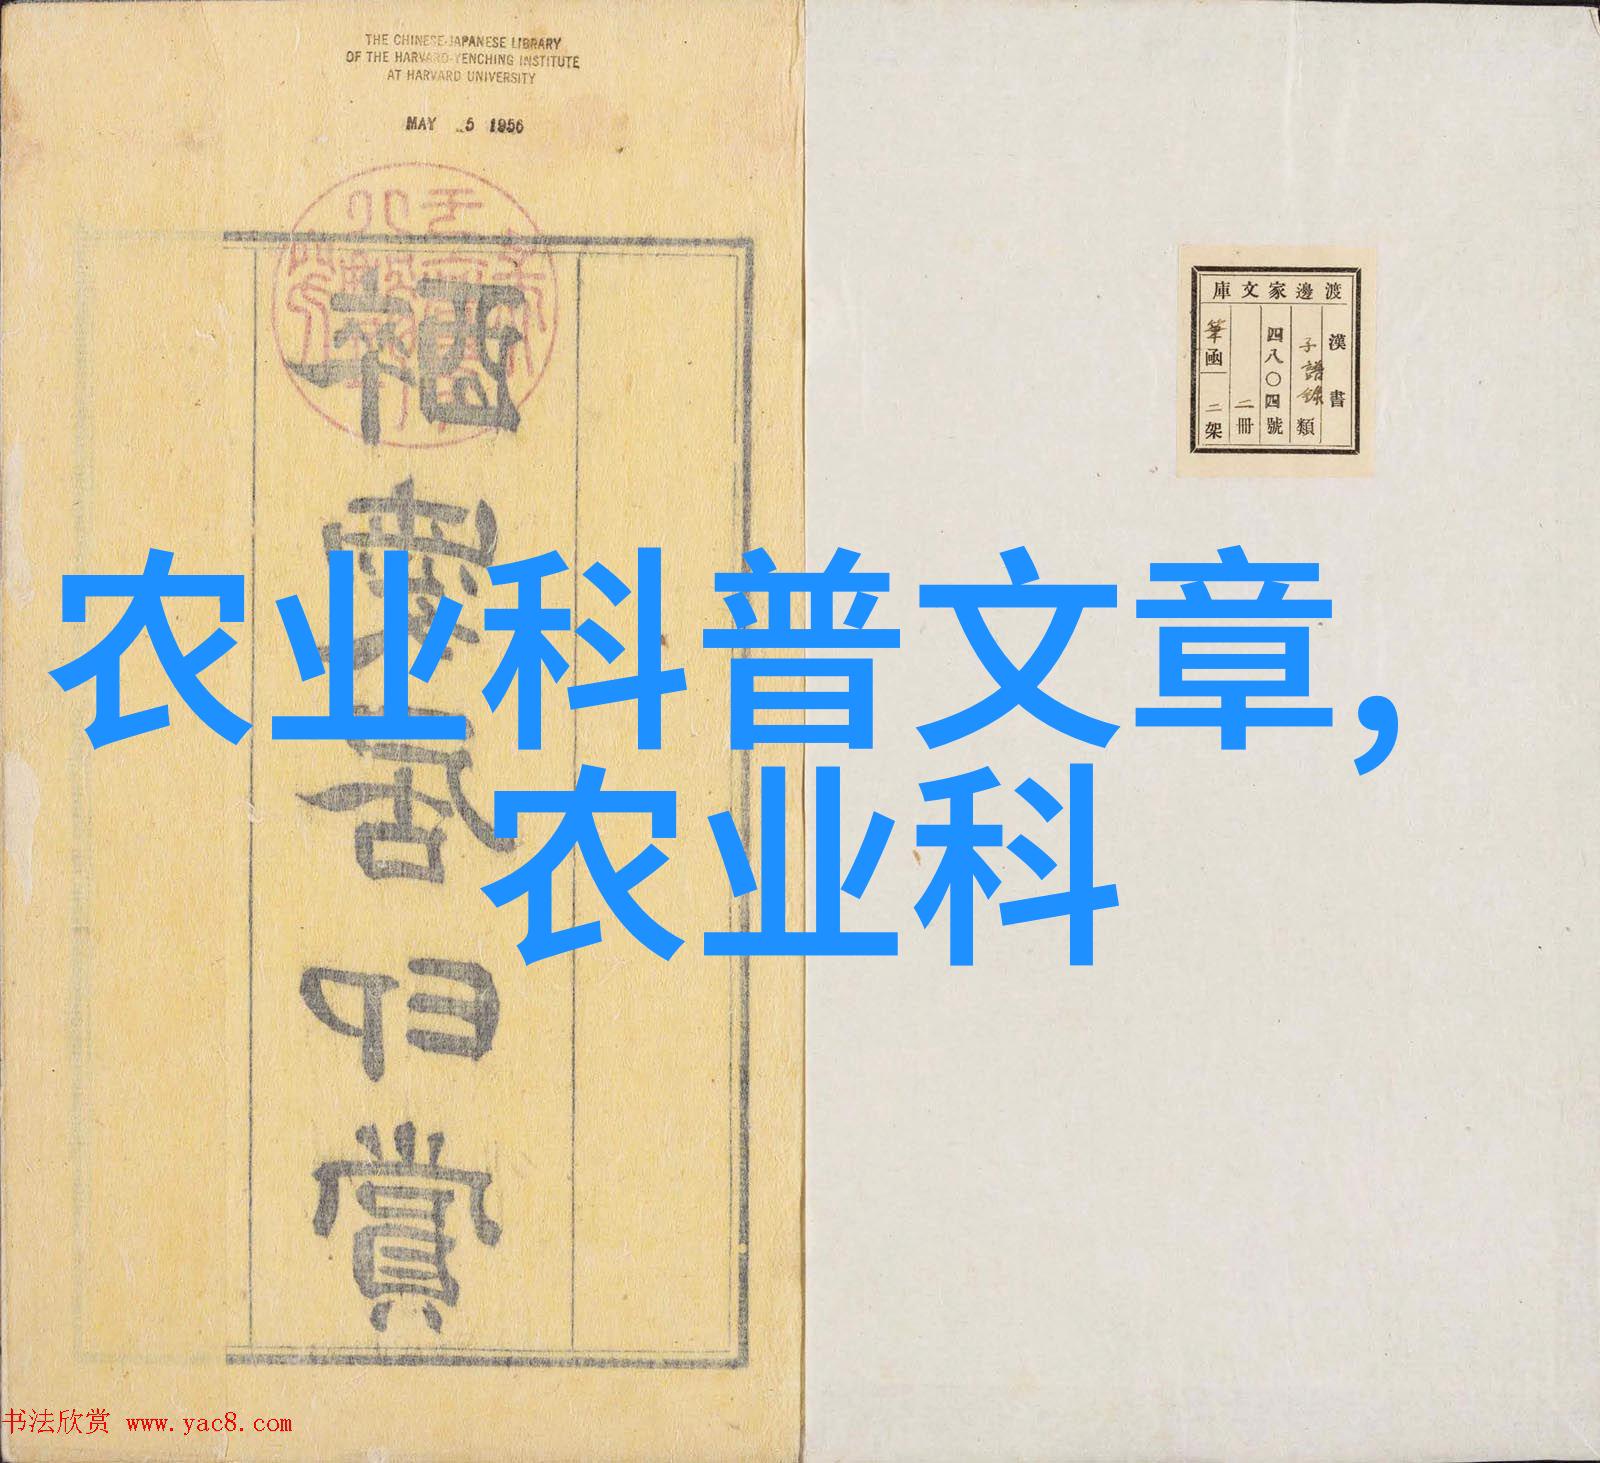 THE CHINESE-JAPANESE LIBRARY
OF THE HARVARD-YENCHING INSTITUTE
AT HARVARD UNIVERSITY
MAY 5 1956
居印賞
渡邊家文庫
漢書
子譜錄類
四八〇四號
二冊
筆函二架
农业科普文章,
农业科
书法欣赏 www.yac8.com